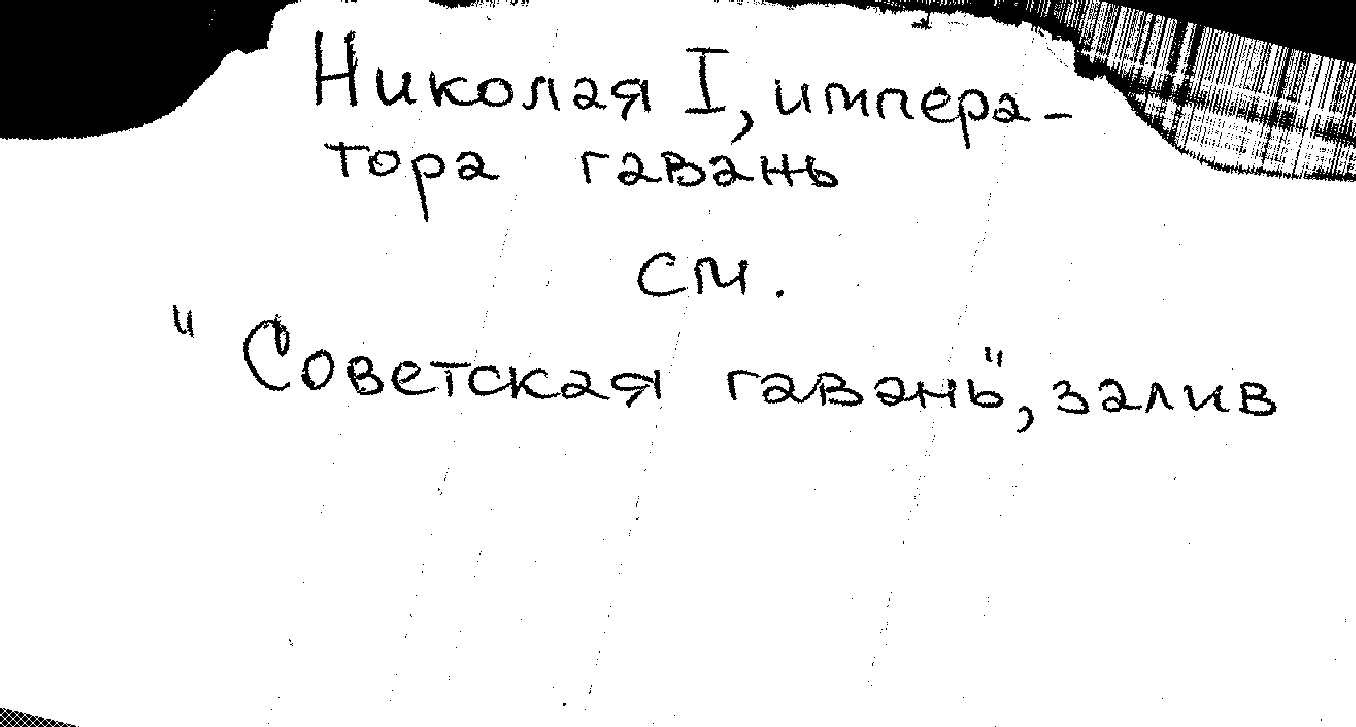 Николая I, импера-
тора гавань
см.
"Советская гавань", залив